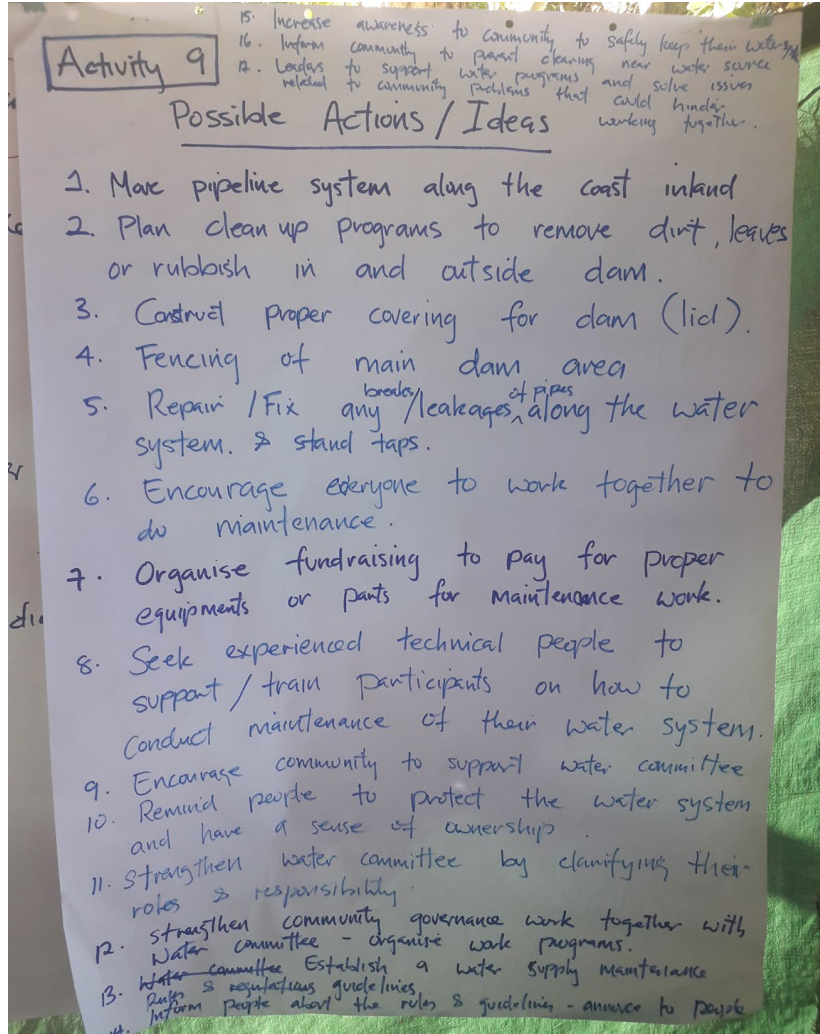 15. Increase awareness to community to safely keep their water
16. Inform community to prevent clearing near water source
17. Leaders to support water programs and solve issues
related to community problems that could hinder
working together.
Activity 9
Possible Actions / Ideas
1. Move pipeline system along the coast inland
2. Plan clean up programs to remove dirt, leaves
or rubbish in and outside dam.
3. Construct proper covering for dam (lid).
4. Fencing of main dam area
5. Repair / Fix any breaks/leakages of pipes along the water
system. & stand taps.
6. Encourage everyone to work together to
do maintenance.
7. Organise fundraising to pay for proper
equipments or parts for maintenance work.
8. Seek experienced technical people to
support / train participants on how to
conduct maintenance of their water system.
9. Encourage community to support water committee
10. Remind people to protect the water system
and have a sense of ownership.
11. Strengthen water committee by clarifying their
roles & responsibility.
12. Strengthen community governance work together with
water committee - organise work programs.
13. Water committee Establish a water supply maintenance
rules & regulations guidelines
Inform people about the rules & guidelines - to people